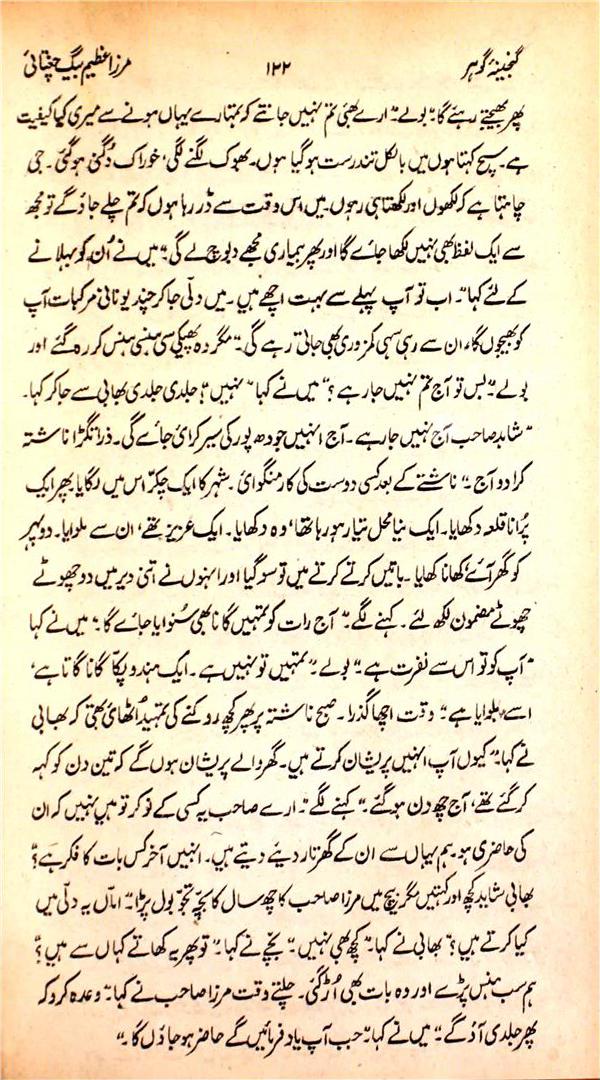 گنجینۂ گوہر ۱۲۲ مرزا عظیم بیگ چغتائی
پھر بھیجتے رہئے گا۔" بولے۔" ارے بھئی تم نہیں جانتے کہ تمہارے یہاں ہونے سے میری کیا کیفیت
ہے۔ سچ کہتا ہوں میں بالکل تندرست ہو گیا ہوں۔ بھوک لگنے لگی، خوراک دُگنی ہو گئی۔ جی
چاہتا ہے کہ لکھوں اور لکھتا ہی رہوں۔ میں اس وقت سے ڈر رہا ہوں کہ تم چلے جاؤ گے تو مجھ
سے ایک لفظ بھی نہیں لکھا جائے گا اور پھر بیماری مجھے دبوچ لے گی۔" میں نے اُن کو بہلانے
کے لئے کہا۔" اب تو آپ پہلے سے بہت اچھے ہیں۔ میں دلّی جا کر چند یونانی مرکبات آپ
کو بھیجوں گا، ان سے رہی سہی کمزوری بھی جاتی رہے گی۔" مگر وہ پھیکی سی ہنسی ہنس کر رہ گئے اور
بولے۔" بس تو آج تم نہیں جا رہے؟" میں نے کہا "نہیں"؛ جلدی جلدی بھابی سے جا کر کہا۔
"شاہد صاحب آج نہیں جا رہے۔ آج انہیں جودھ پور کی سیر کرائی جائے گی۔ ذرا تگڑا ناشتہ
کرا دو آج۔" ناشتے کے بعد کسی دوست کی کار منگوائی۔ شہر کا ایک چکّر اس میں لگایا۔ پھر ایک
پُرانا قلعہ دکھایا۔ ایک نیا محل تیار ہو رہا تھا، وہ دکھایا۔ ایک عزیز تھے، ان سے ملوایا۔ دوپہر
کو گھر آئے، کھانا کھایا۔ باتیں کرتے کرتے میں تو سو گیا اور انہوں نے اتنی دیر میں دو چھوٹے
چھوٹے مضمون لکھ لئے۔ کہنے لگے۔" آج رات کو تمہیں گانا بھی سُنوایا جائے گا۔" میں نے کہا
"آپ کو تو اس سے نفرت ہے۔" بولے۔" تمہیں تو نہیں ہے۔ ایک ہندو پکّا گانا گاتا ہے،
اسے بلوایا ہے۔" وقت اچھا گذرا۔ صبح ناشتہ پر پھر کچھ روکنے کی تمہید اُٹھائی تھی کہ بھابی
نے کہا۔" کیوں آپ انہیں پریشان کرتے ہیں۔ گھر والے پریشان ہوں گے کہ تین دن کو کہہ
کر گئے تھے، آج چھ دن ہو گئے۔" کہنے لگے۔" ارے صاحب یہ کسی کے نوکر تو ہیں نہیں کہ ان
کی حاضری ہو۔ ہم یہاں سے ان کے گھر تار دیئے دیتے ہیں۔ انہیں آخر کس بات کا فکر ہے؟"
بھابی شاید کچھ اور کہتیں مگر بیچ میں مرزا صاحب کا چھ سال کا بچّہ بول پڑا۔" اماں یہ دلّی میں
کیا کرتے ہیں؟" بھابی نے کہا۔" کچھ بھی نہیں۔" بچّے نے کہا۔" تو پھر یہ کھاتے کہاں سے ہیں؟"
ہم سب ہنس پڑے اور وہ بات بھی اُڑ گئی۔ چلتے وقت مرزا صاحب نے کہا۔" وعدہ کرو کہ
پھر جلدی آؤ گے۔" میں نے کہا۔" جب آپ یاد فرمائیں گے حاضر ہو جاؤں گا۔"